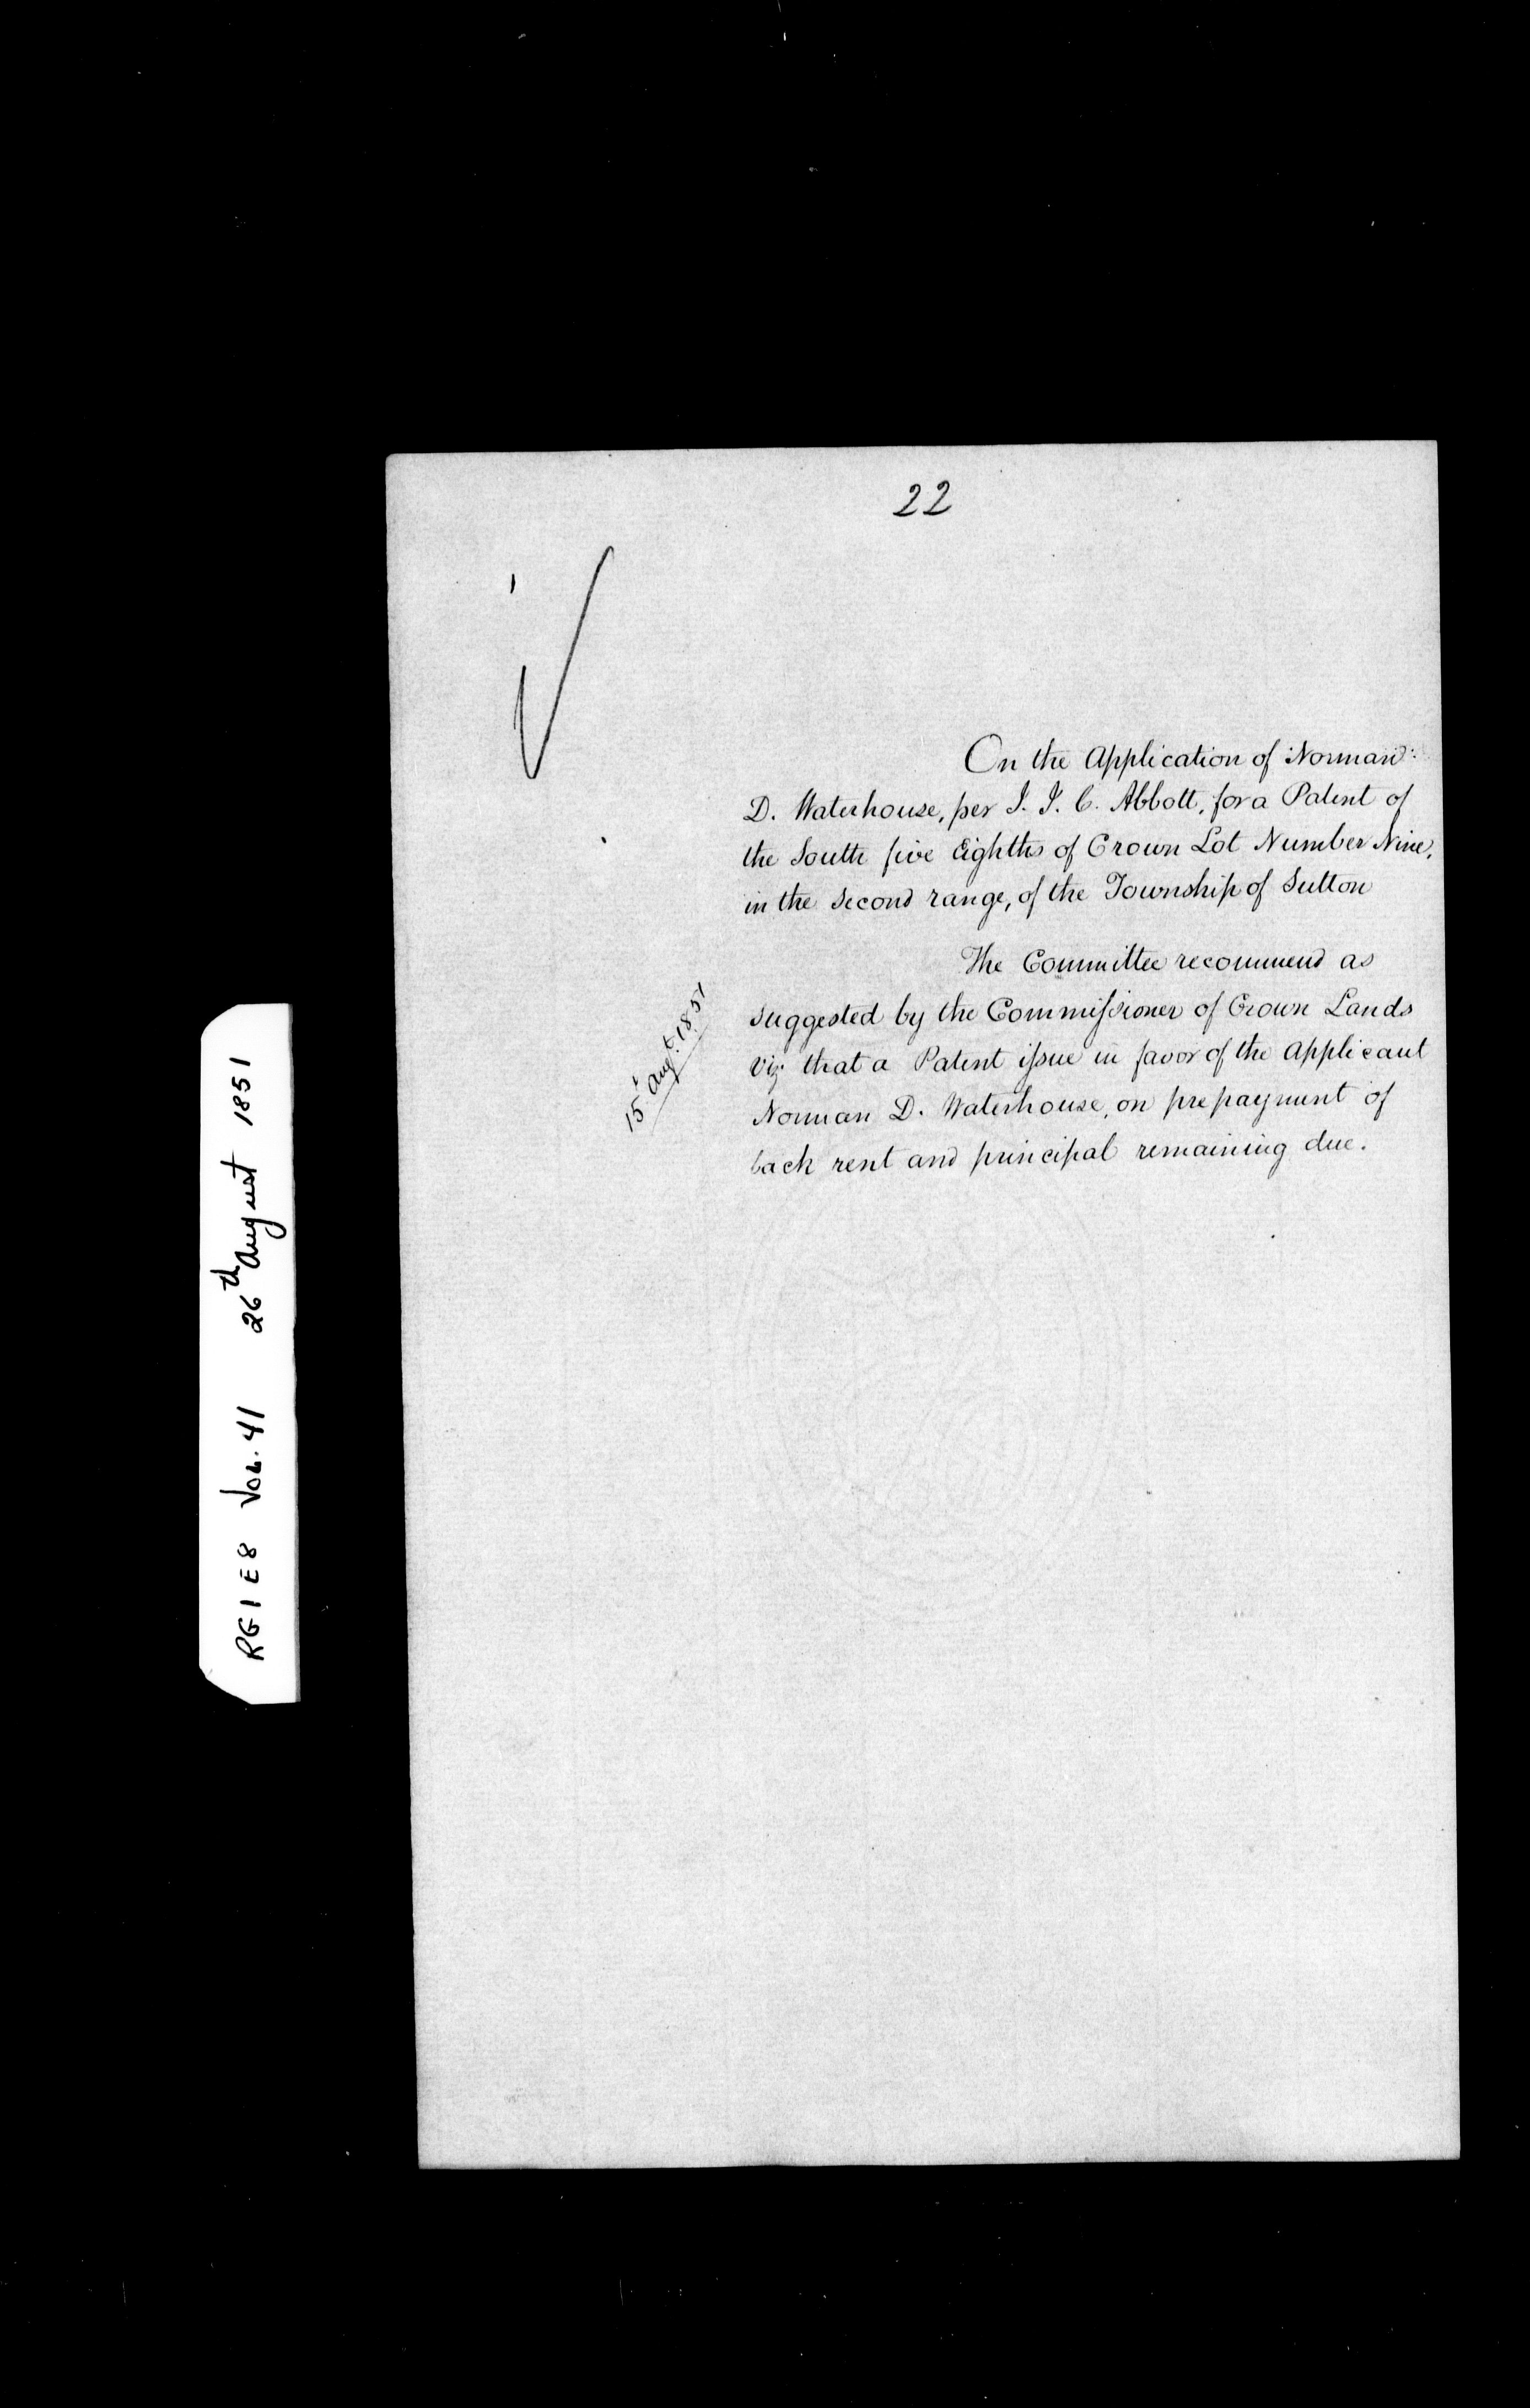 22
On the Application of Norman
D. Waterhouse, per J. J. C. Abbott, for a Patent of
the South five Eighths of Crown Lot Number Nine,
in the second range, of the Township of Sutton
The Committee recommend as
suggested by the Commissioner of Crown Lands
viz that a Patent issue in favor of the Applicant
Norman D. Waterhouse, on prepayment of
back rent and principal remaining due.
15 Augt. 1851
RG1 E8 VOL. 41 26th August 1851